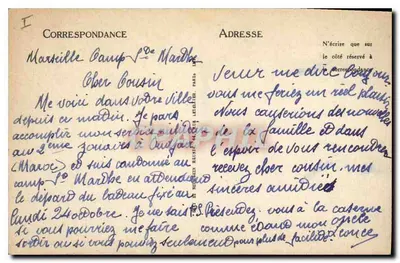 I
CORRESPONDANCE
ADRESSE
N'écrire que sur
le côté réservé à
Marseille Camp Ste Marthe
Cher Cousin
Me voici dans votre ville
depuis ce matin. Je pars
accomplir mon service militaire
au 2ème zouaves Oudjda
(Maroc) et suis cantonné au
camp Ste Marthe en attendant
le départ du bateau fixé au
lundi 24 octobre. Je ne sais
si vous pourriez me faire
sortir ou si vous pouvez seulement
venir me dire bonjour
vous me feriez un réel plaisir
Nous causerions des nouvelles
de la famille et dans
l'espoir de vous rencontrer
recevez cher cousin mes
sincères amitiés
P.S. Présentez-vous à la caserne
comme étant mon oncle
pour plus de facilité